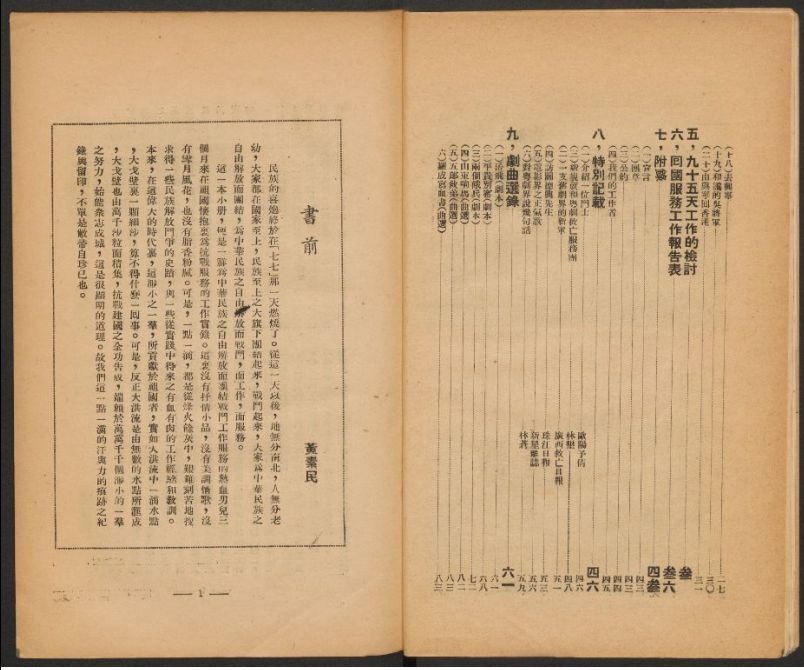 (十八)去興寧 二七
(十九)和藹的吳將軍 三〇
(二十)由興寧回香港 三一
五，九十五天工作的檢討 叁
六，囘國服務工作報告表 叁六
七，附錄 四叁
(一)宣言 四三
(二)團章 四三
(三)公約 四四
(四)我們的工作者 四五
八，特別記載 四六
(一)介紹一位鬥士 歐陽予倩 四六
林堅 四八
廣西救亡日報 五一
(四)訪問德興先生 珠江日報 五三
(五)電影界之正氣歌 新星雜誌 五六
(六)對粵劇界說幾句話 林燕 五九
九，劇曲選錄 六一
六一
(二)平戎別窰(劇本) 六八
(三)兩個俄兵(劇本) 七二
(四)山東響馬(曲選) 八二
(五)五郎救弟(曲選) 八三
(六)羅成寫血書(曲選) 八三
書前
黃素民
民族的喜炮終於在「七七」那一天燃燒了。從這一天以後，地無分南北，人無分老
幼，大家都在國家至上，民族至上之大旗下團結起來，戰鬥起來，大家爲中華民族之
自由解放而團結，爲中華民族之自由解放而戰鬥，而工作，而服務。
這一本小册，便是一羣爲中華民族之自由解放而團結戰鬥工作服務的熱血男兒三
個月來在祖國懷抱裏爲抗戰服務的工作實錄。這裏沒有抒情小品，沒有美調情歌，沒
有雪月風花，也沒有脂香粉膩。可是，一點一滴，都是從烽火餘灰中，艱難刻苦地搜
求得一些民族解放鬥爭的史蹟，與一些從實踐中得來之有血有肉的工作經驗和教訓。
本來，在這偉大的時代裏，這渺小之一羣，所貢獻於祖國者，實如大洪流中一滴水點
，大戈壁裏一顆細沙，算不得什麽一囘事。可是，反正大洪流是由無數的水點所滙成
，大戈壁也由萬千沙粒而積集，抗戰建國之全功告成，端賴於萬萬千千個渺小的一羣
之努力，始能衆志成城，這是很顯明的道理。故我們這一點一滴的汗與力的痕跡之紀
錄與留印，不單是敝帚自珍已也。
— 1 —